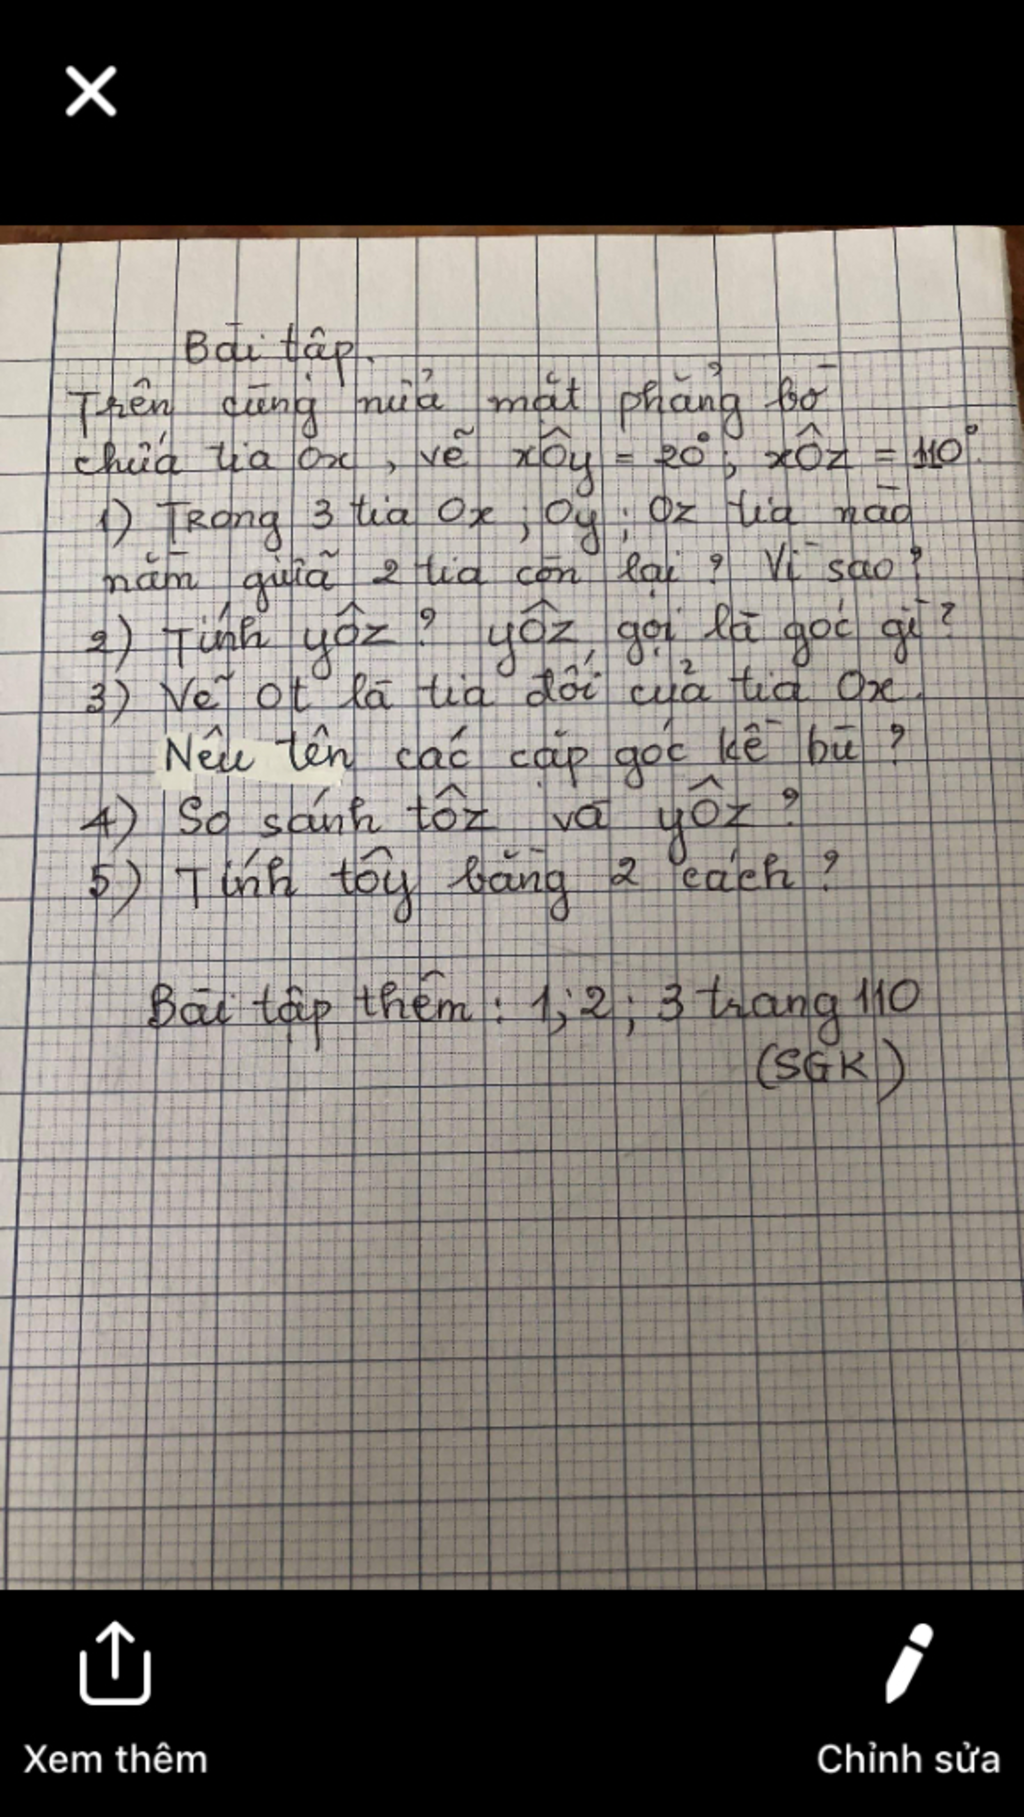 Bài tập.
Trên cùng nửa mặt phẳng bờ
chứa tia Ox, vẽ xÔy = 20°; xÔz = 110°.
1) Trong 3 tia Ox; Oy; Oz tia nào
nằm giữa 2 tia còn lại? Vì sao?
2) Tính yÔz? yÔz gọi là góc gì?
3) Vẽ Ot là tia đối của tia Ox.
Nêu tên các cặp góc kề bù?
4) So sánh tÔz và yÔz?
5) Tính tÔy bằng 2 cách?
Bài tập thêm: 1; 2; 3 trang 110
(SGK)
Xem thêm
Chỉnh sửa